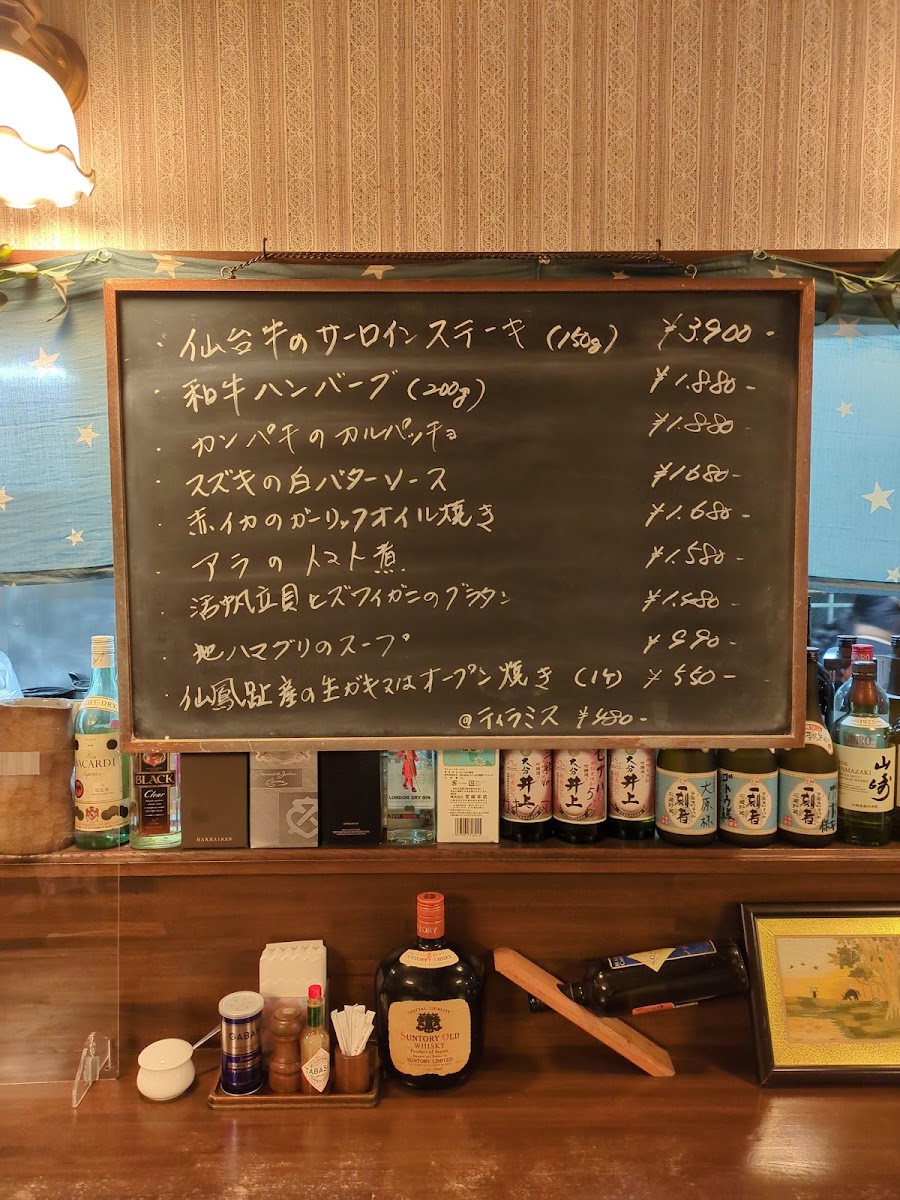 ・仙台牛のサーロインステーキ (150g) ¥3.900-
・和牛ハンバーグ (200g) ¥1.880-
・カンパチのカルパッチョ ¥1.880-
・スズキの白バターソース ¥1680-
・赤イカのガーリックオイル焼き ¥1.680-
・アラのトマト煮 ¥1.580-
・活帆立貝とズワイガニのグラタン ¥1.480-
・地ハマグリのスープ ¥990-
・仙鳳趾産の生ガキ又はオーブン焼き (1ケ) ¥550-
@ティラミス ¥480-
BACARDI
BLACK
Clear
HAKKAISAN
LONDON DRY GIN
大分 井上
大分 井上
大分 井上
一刻者
大原様
一刻者
一刻者
YAMAZAKI
山崎
SUNTORY OLD
WHISKY
Product of Japan
SUNTORY LIMITED
GABAN
TABASCO